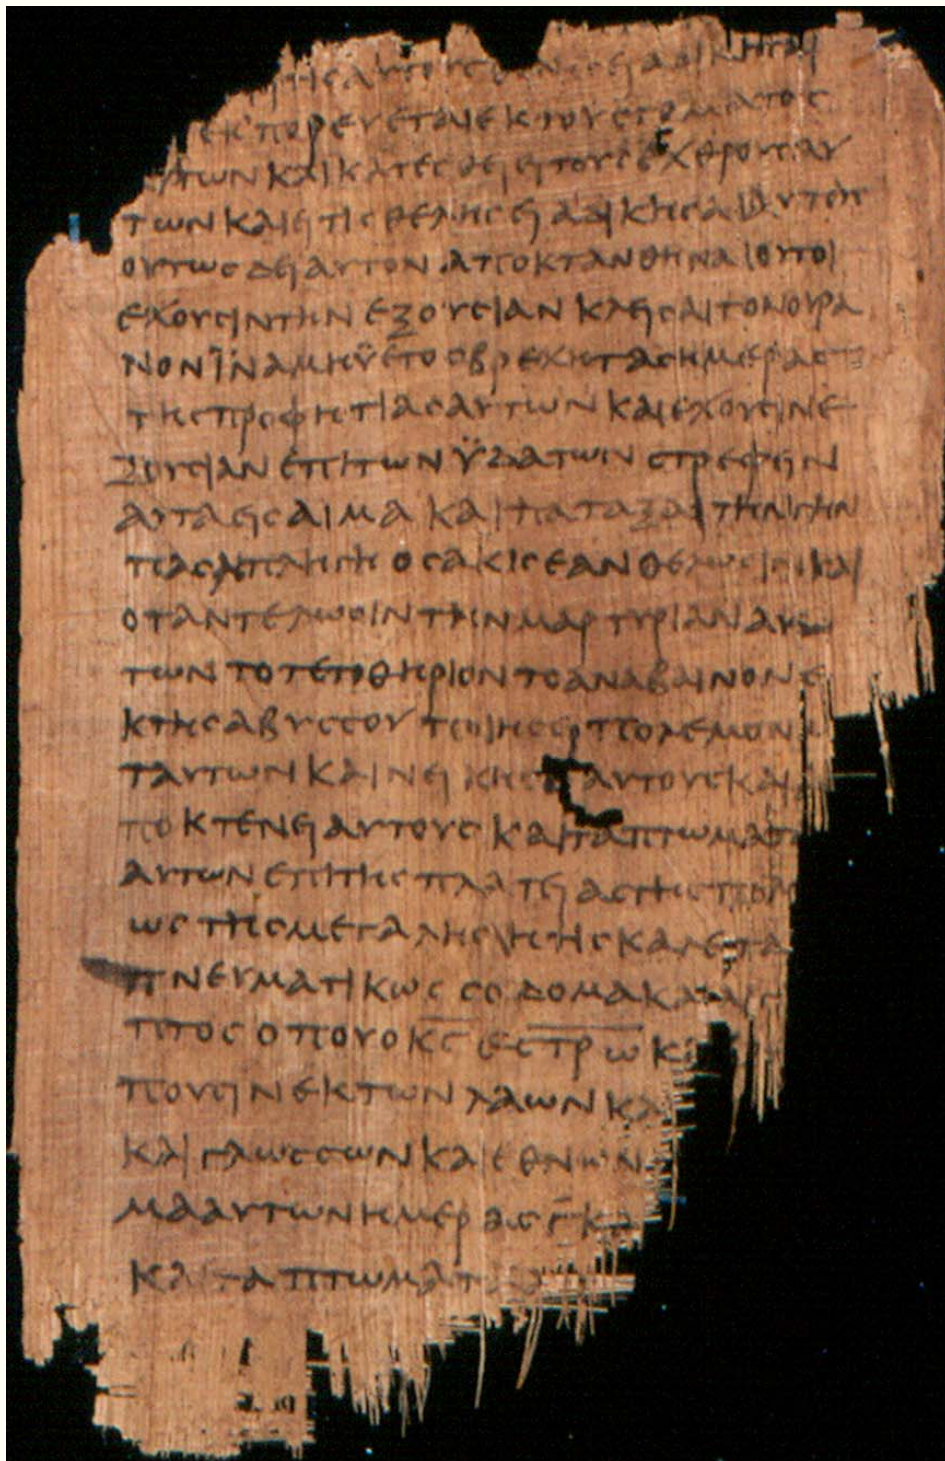 τις αυτους θελει αδικησαι
εκπορευεται εκ του στοματος
αυτων και κατεσθειει τους εχθρους αυ
των και ει τις θελησει αδικησαι αυτους
ουτως δει αυτον αποκτανθηναι ουτοι
εχουσιν την εξουσιαν κλεισαι τον ουρα
νον ϊνα μη ϋετος βρεχη τας ημερας
της προφητιας αυτων και εχουσιν ε
ξουσιαν επι των ϋδατων στρεφειν
αυτα εις αιμα και παταξαι την γην
παση πληγη οσακις εαν θελωσιν και
οταν τελωσιν την μαρτυριαν αυ
των το τοτε θηριον το αναβαινον ε
κ της αβυσσου ποιησει πολεμον με
τ αυτων και νεικησει αυτους και α
ποκτενει αυτους και τα πτωματα
αυτων επι της πλατειας της πολε
ως της μεγαλης ητις καλειται
πνευματικως σοδομα και αιγυ
πτος οπου ο κ̅ς̅ ε̅σ̅τ̅ρ̅ω̅ κ
πουσιν εκ των λαων και
και γλωσσων και εθνων
μα αυτων ημερας γ̅ κα
και τα πτωματα